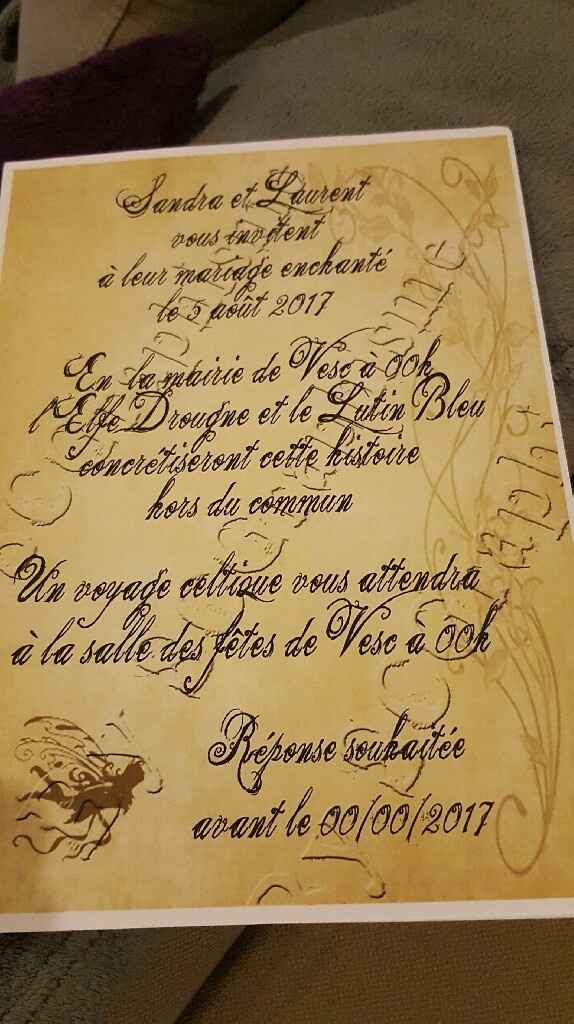 Sandra et Laurent
vous invitent
à leur mariage enchanté
le 5 août 2017
En la mairie de Vesc à 00h
l'Elfe Drougne et le Lutin Bleu
concrétiseront cette histoire
hors du commun
Un voyage celtique vous attendra
à la salle des fêtes de Vesc à 00h
Réponse souhaitée
avant le 00/00/2017